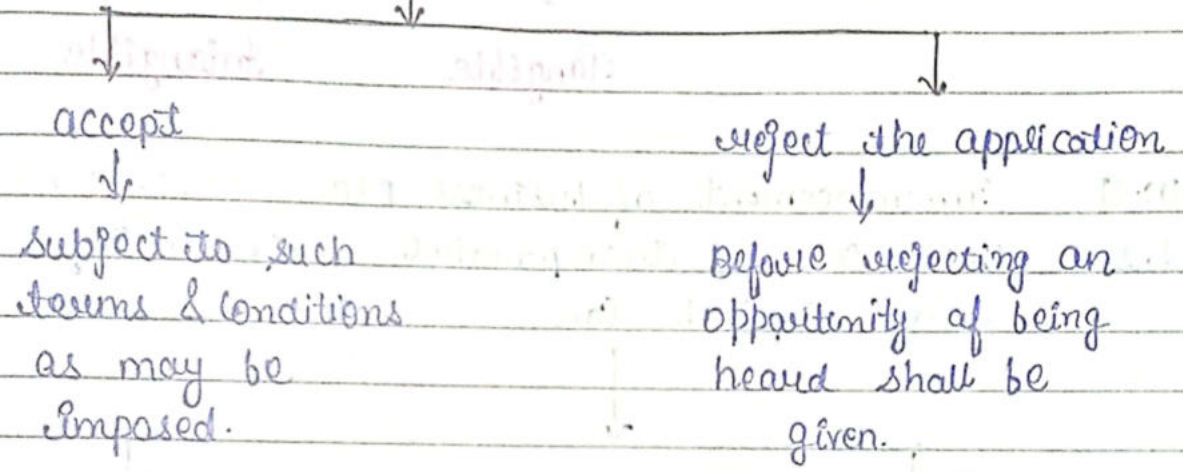 accept
subject to such
terms & Conditions
as may be
imposed.
reject the application
Before rejecting an
opportunity of being
heard shall be
given.